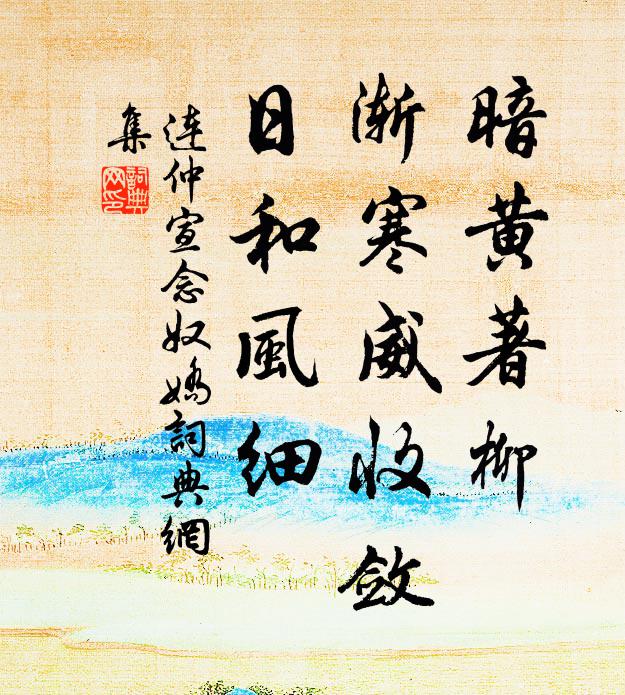 暗黄著柳
渐寒威收敛
日和風细
连仲宣念奴娇詞典網
集
詞典
网印